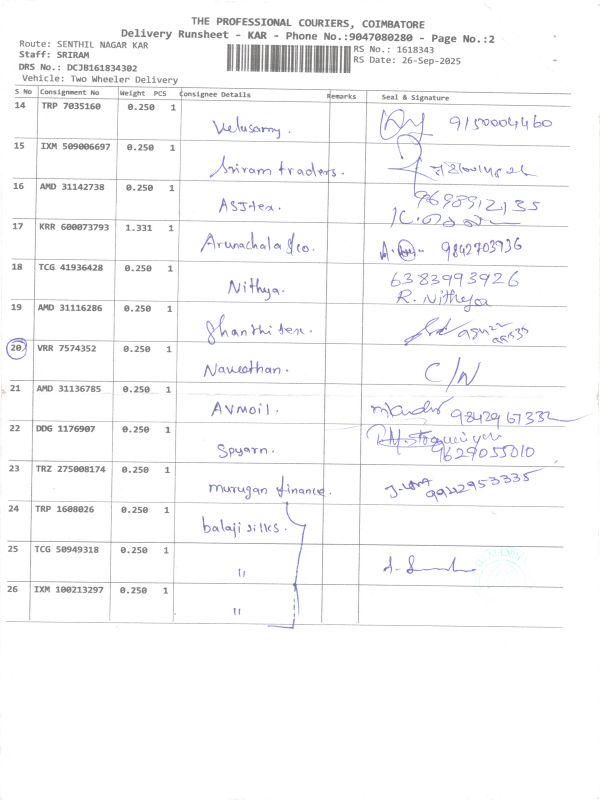 THE PROFESSIONAL COURIERS, COIMBATORE
Delivery Runsheet - KAR - Phone No.:9047080280 - Page No.:2
Route: SENTHIL NAGAR KAR
RS No.: 1618343
Staff: SRIRAM
RS Date: 26-Sep-2025
DRS No.: DCJB161834302
Vehicle: Two Wheeler Delivery
S No Consignment No Weight PCS Consignee Details Remarks Seal & Signature
14 TRP 7035160 0.250 1 Velusamy. 9150004460
15 IXM 509006697 0.250 1 Sriram traders.
16 AMD 31142738 0.250 1 ASJtex. 9698912135
17 KRR 600073793 1.331 1 Arunachala &co. 9842703936
18 TCG 41936428 0.250 1 Nithya. 6383993926
R. Nithya
19 AMD 31116286 0.250 1 Shanthi tex.
20 VRR 7574352 0.250 1 Naveethan. C/N
21 AMD 31136785 0.250 1 AVMOIL. 9842967332
22 DDG 1176907 0.250 1 Spyarn. 9629055010
23 TRZ 275008174 0.250 1 murugan finance. 9942953335
24 TRP 1608026 0.250 1 balaji silks.
25 TCG 50949318 0.250 1 "
26 IXM 100213297 0.250 1 "